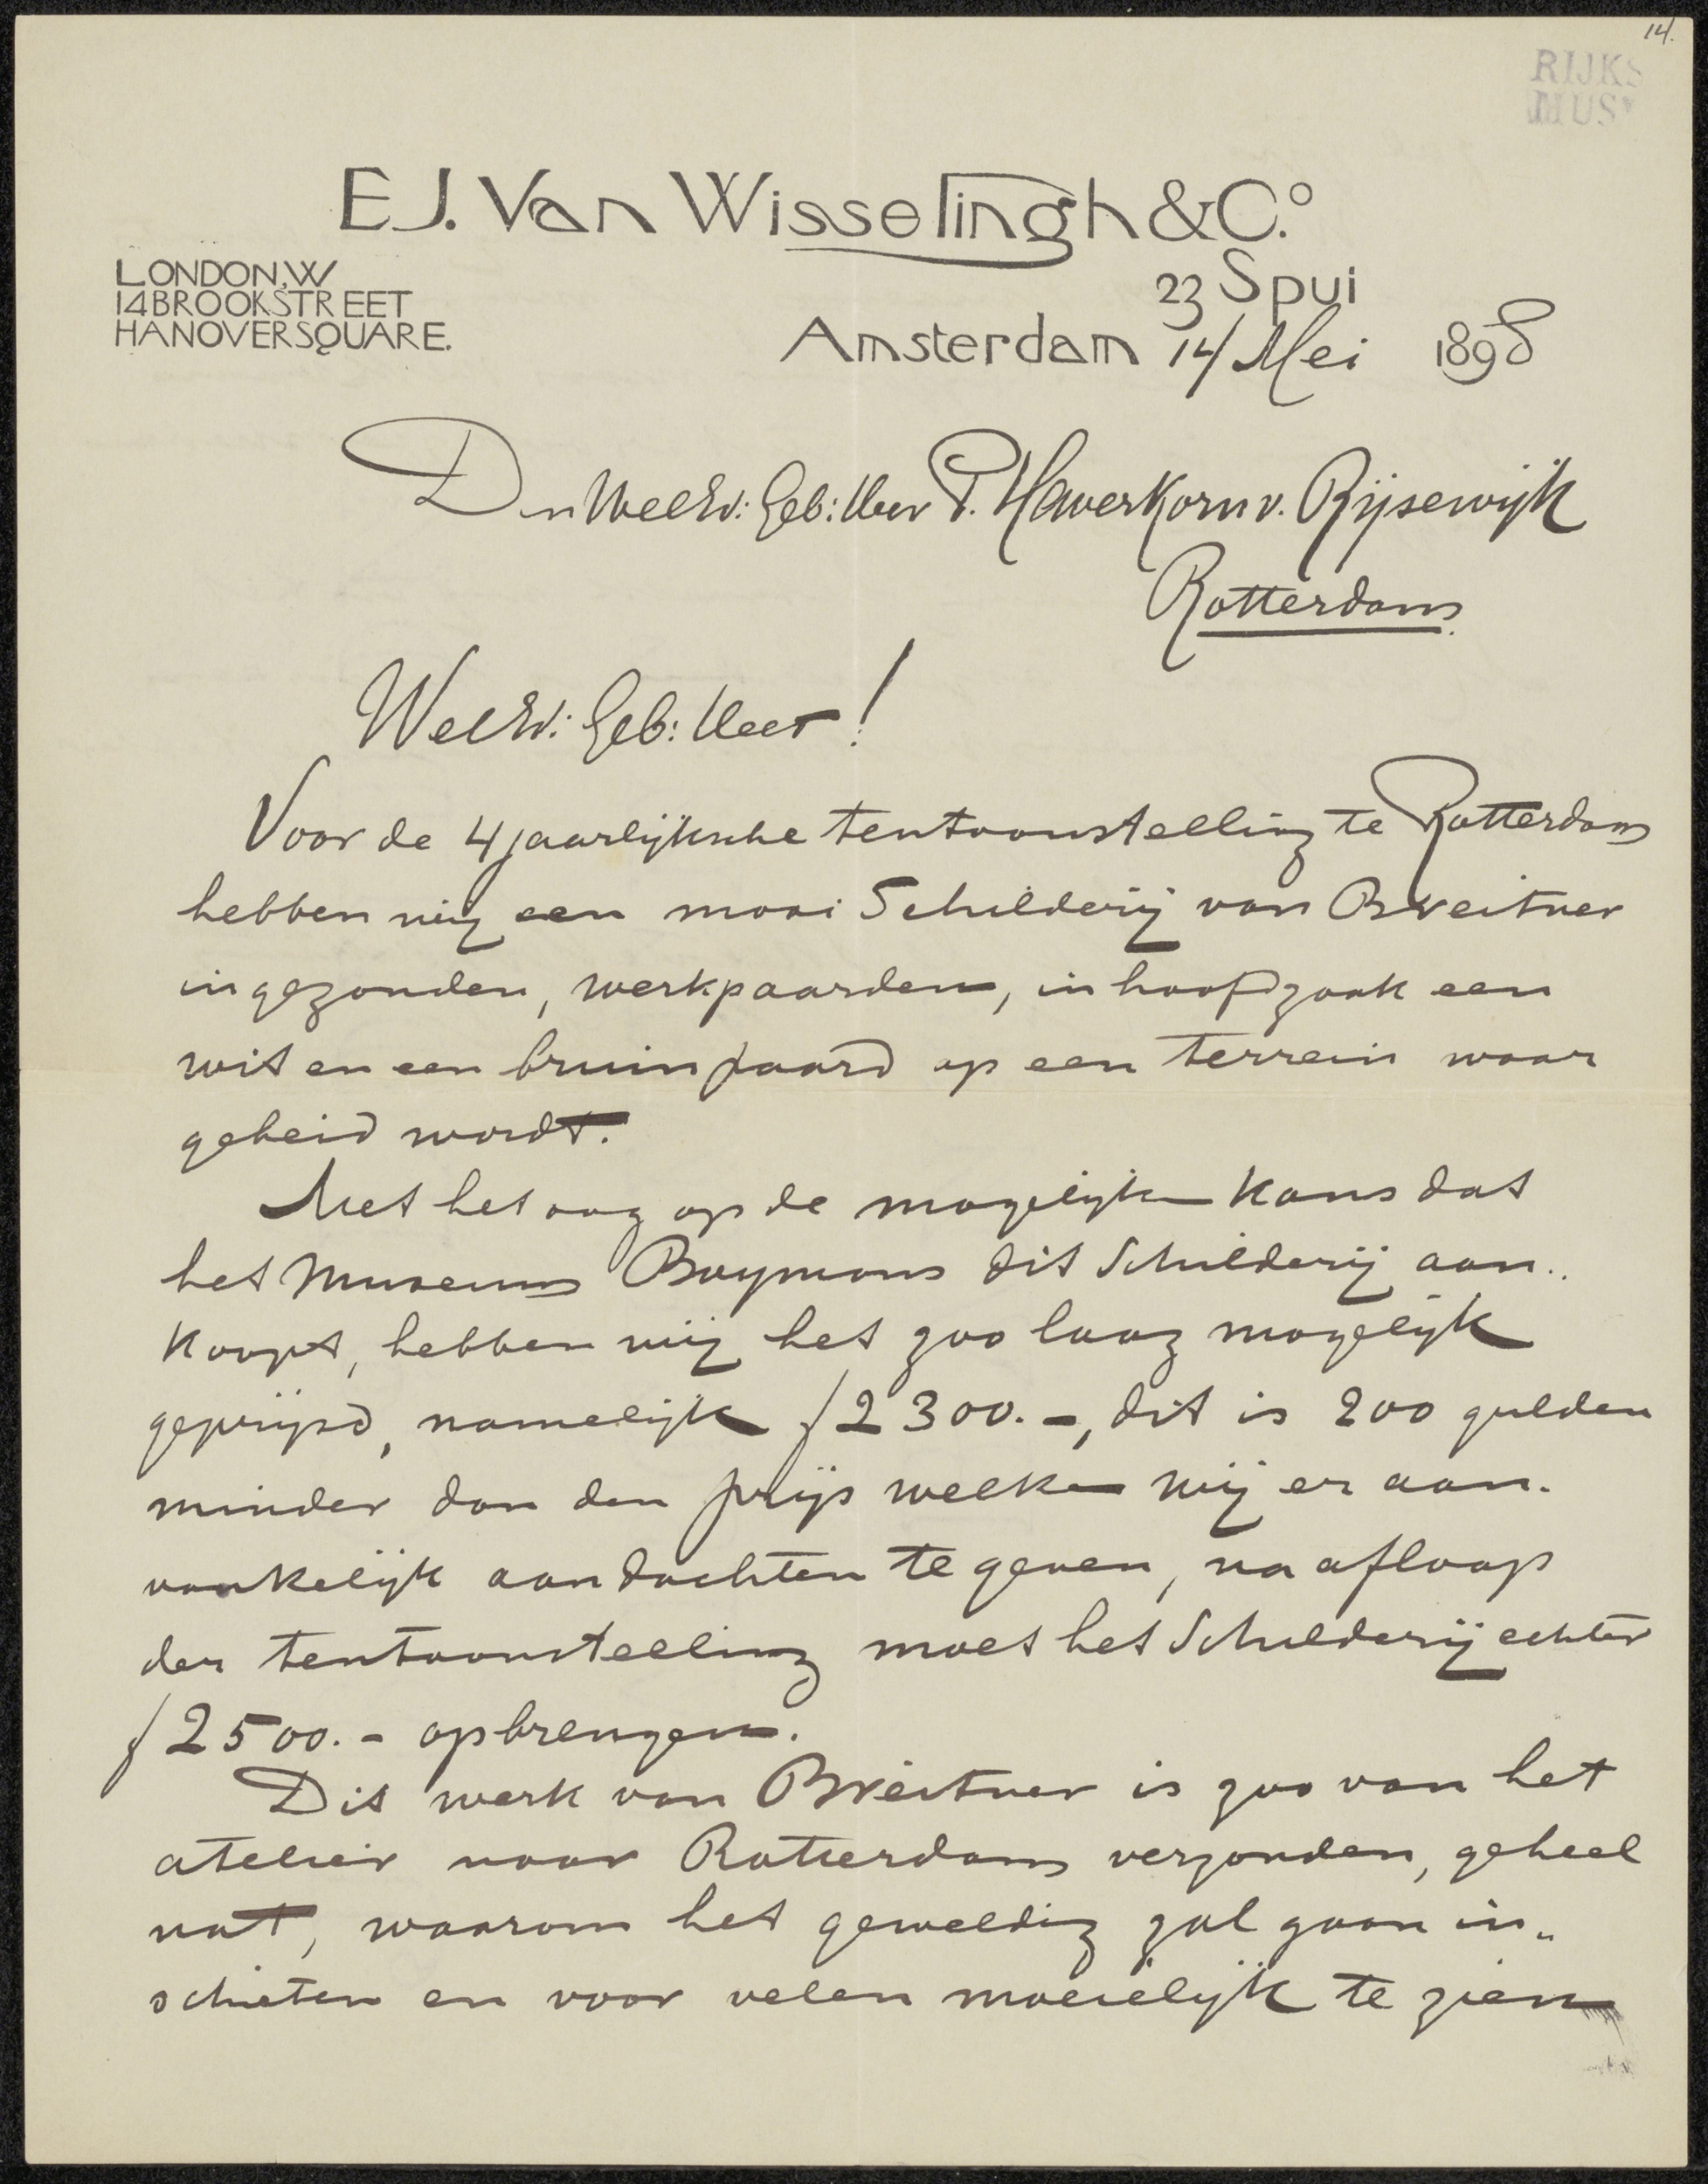 14.
RIJKS
MUS
E.J. Van Wisselingh & Co.
LONDON, W
14 BROOKSTREET
HANOVERSQUARE.
23 Spui
Amsterdam 14 Mei 1898
Den WelEd: Geb: Heer P. Haverkorn v. Rijsewijk
Rotterdam.
WelEd: Geb: Heer!
Voor de 4 jaarlijksche tentoonstelling te Rotterdam
hebben wij een mooi Schilderij van Breitner
ingezonden, werkpaarden, in hoofdzaak een
wit en een bruin paard op een terrein waar
geheid wordt.
Met het oog op de mogelijke kans dat
het Museum Boymans dit Schilderij aan..
koopt, hebben wij het zoo laag mogelijk
geprijsd, namelijk f 2300.-, dit is 200 gulden
minder dan den prijs welken wij er aan.
vankelijk aandachten te geven, na afloop
der tentoonstelling moet het Schilderij echter
f 2500.- opbrengen.
Dit werk van Breitner is zoo van het
atelier naar Rotterdam verzonden, geheel
nat, waarom het geweldig zal gaan in„
schieten en voor velen moeielijk te zien